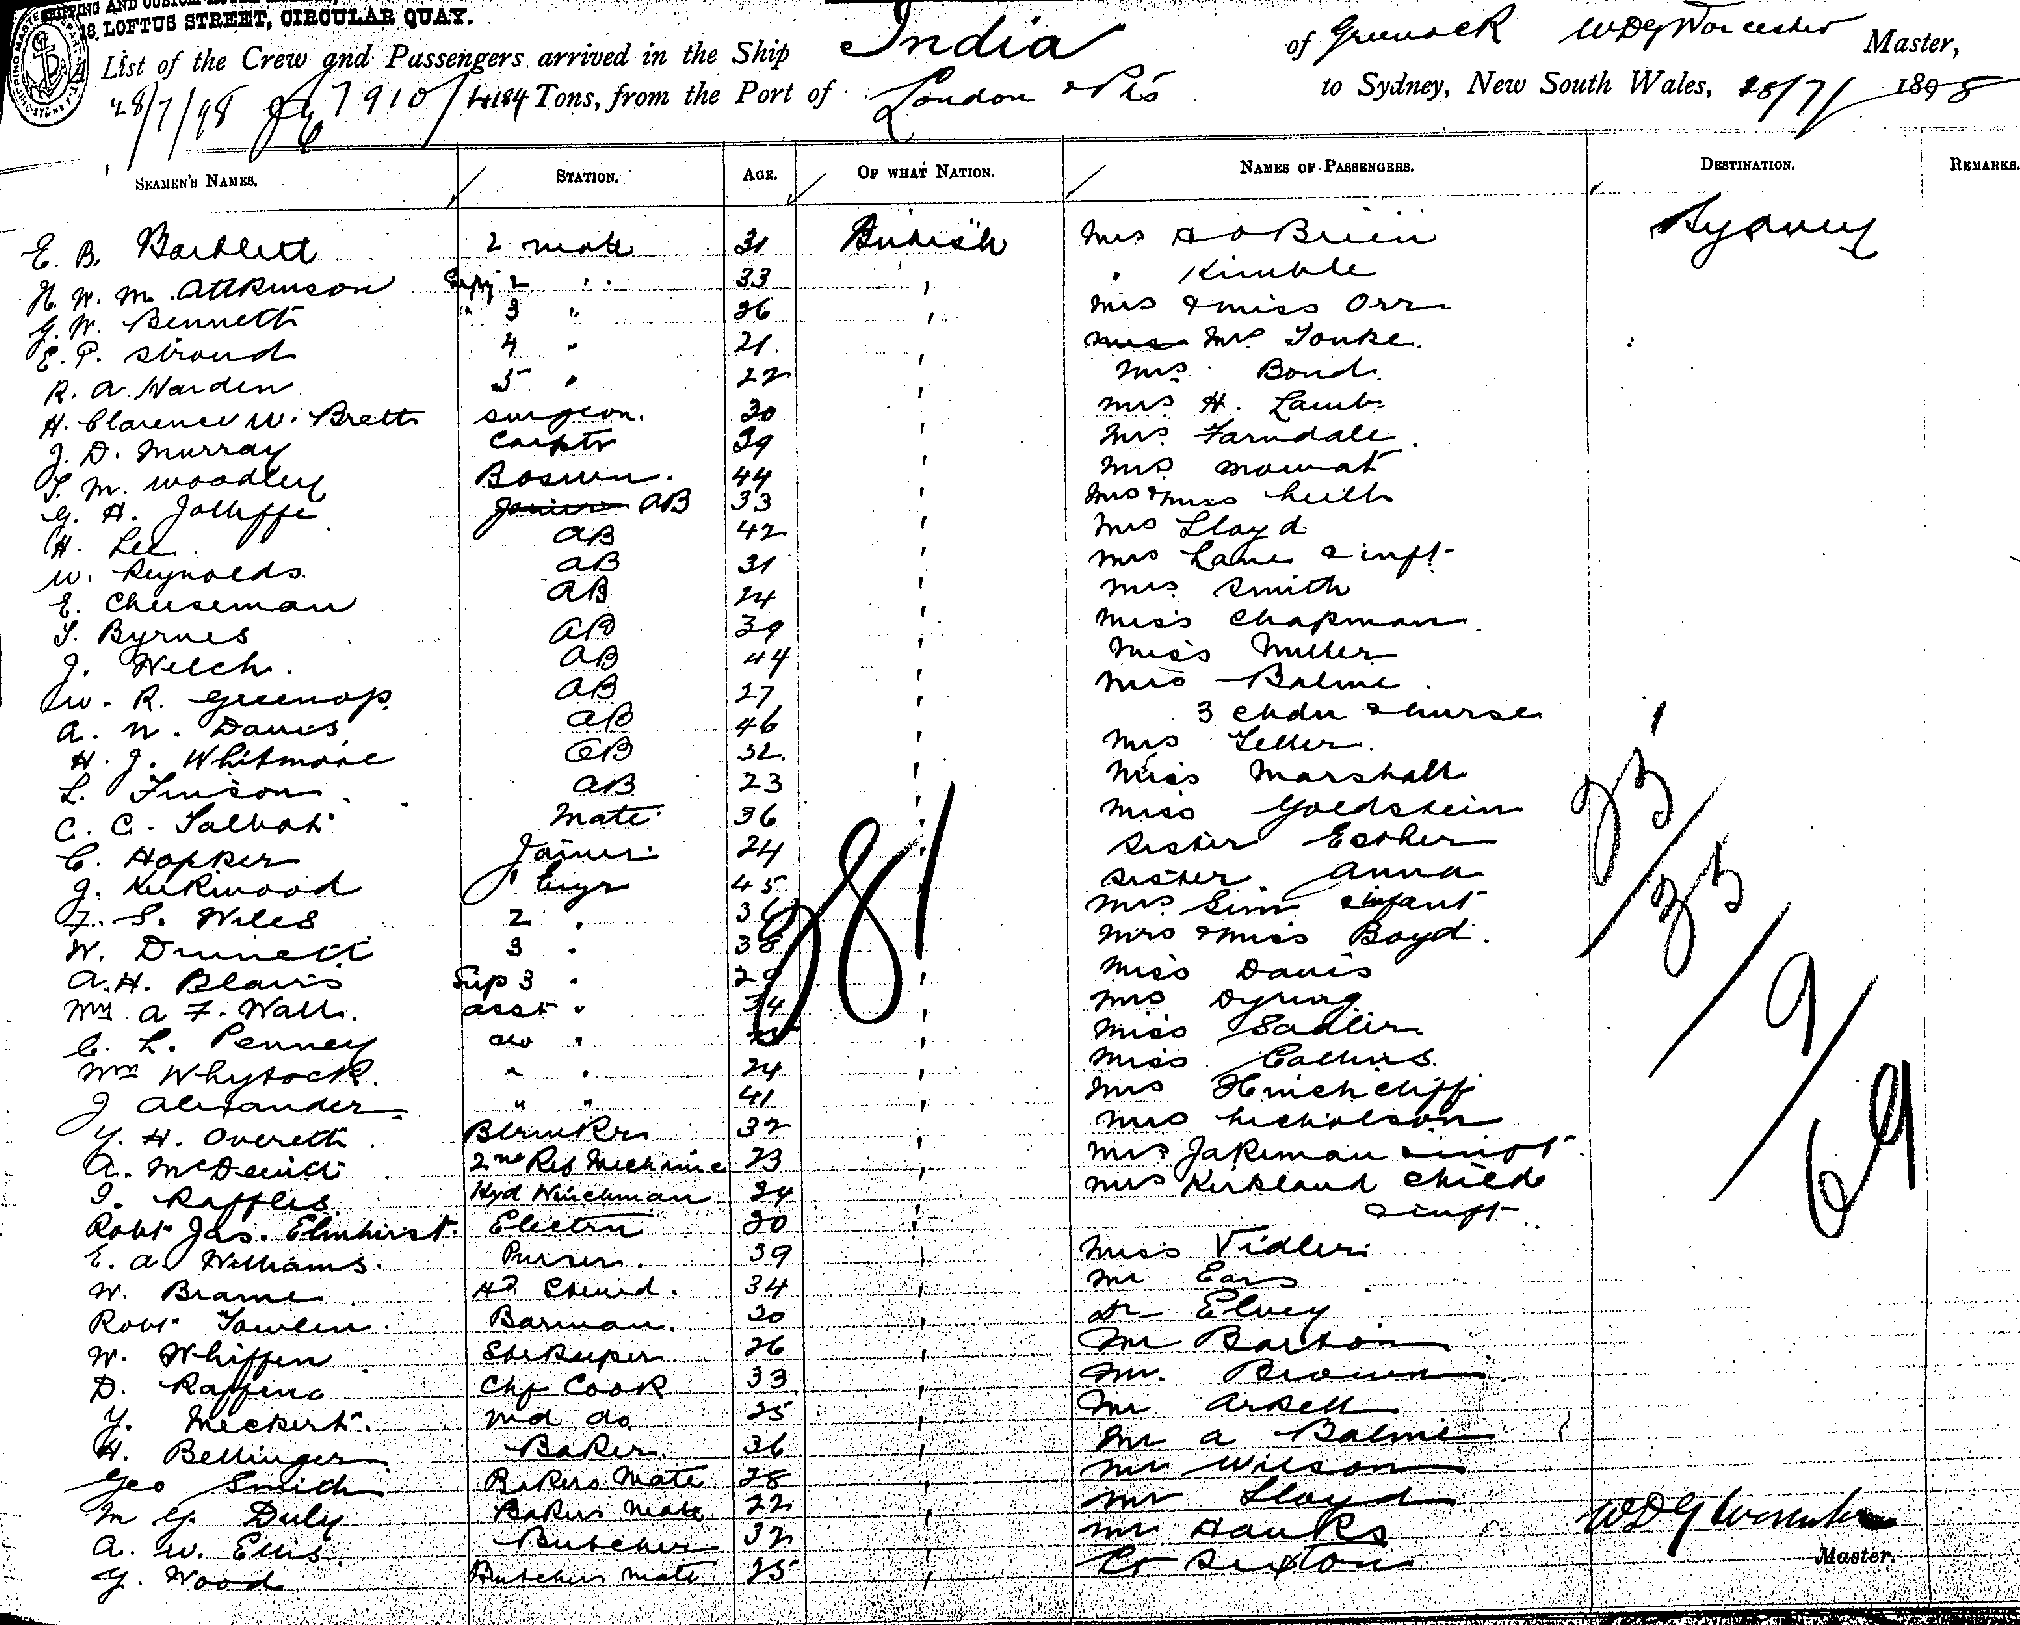 SHIPPING AND CUSTOM HOUSE
18, LOFTUS STREET, CIRCULAR QUAY.
List of the Crew and Passengers arrived in the Ship India of Greenock WDG Worcester Master,
28/7/98 7910/4184 Tons, from the Port of London & Pts to Sydney, New South Wales, 28/7/ 1898
SEAMEN'S NAMES. STATION. AGE. OF WHAT NATION. NAMES OF PASSENGERS. DESTINATION. REMARKS.
E. B. Bartlett 2 mate 31 British Mrs O'Brien Sydney
H. W. M. Attkinson 2 " 33 " " Kimble
G. W. Bennett " 3 " 26 " Mrs & Miss Orr
E. P. Stroud 4 " 21 " Mrs
R. A. Harden 5 " 22 " Mrs Bond
H. Clarence W. Brett Surgeon. 30 " Mrs H. Lamb
J. D. Murray Carptr 39 " Mrs Farndale
T. M. Woodley Boswn. 44 " Mrs Mowat
G. H. Jolliffe AB 33 " Mrs & Miss
H. Lee AB 42 " Mrs Lloyd
W. Reynolds AB 31 " Mrs Lane & inft
E. Cheeseman AB 24 " Mrs Smith
T. Byrnes AB 39 " Miss Chapman
J. Welch AB 44 " Miss Miller
W. R. Greenop AB 27 " Mrs Balme
A. N. Davis AB 46 " 3 chdn & nurse
H. J. Whitmore AB 32 " Mrs
L. AB 23 " Miss Marshall
C. C. Talbot Mate 36 " Miss Goldstein
C. Hopker Joiner 24 " Sister Esther
J. Kirkwood 1 Engr 45 " Sister Anna
F. S. Wiles 2 " 36 " Mrs Sim & infant
W. Dunnett 3 " 38 " Mrs & Miss Boyd
A. H. Blair Sup 3 " 29 " Miss Davis
Wm A. F. Wall asst " 34 " Mrs Dyring
C. L. Penney do " " Miss Sadlier
Wm Whytock " " 24 " Miss Collins
J Alexander " " 41 " Mrs Hinchcliff
Y. H. Overett 32 " Mrs Nicholson
A. McDevitt 2nd Ref Mechanic 23 " Mrs Jakeman & inft
I. Raffles Hyd Winchman 24 " Mrs Kirkland child
Robt Jas. Elmhirst Electrn 20 " & inft
E. A. Williams Purser 39 " Miss Vidler
W. Brame Hd Stewd. 34 " Mr
Robt Barman. 20 " Dr Elvey
W. Whiffen Stekeeper 26 " Mr Barton
D. Chf Cook 33 " Mr. Brown
Y. Meckert 2nd do 25 " Mr Arkell
H. Bellinger Baker 36 " Mr A Balme
Geo Smith Bakers Mate 28 " Mr Wilson
M G. Duly Bakers Mate 22 " Mr Lloyd
A. W. Ellis Butcher 32 " Mr Hanks
G. Wood Butchers Mate 25 " Sexton
81
33/33/9/69
WDG Worcester
Master.